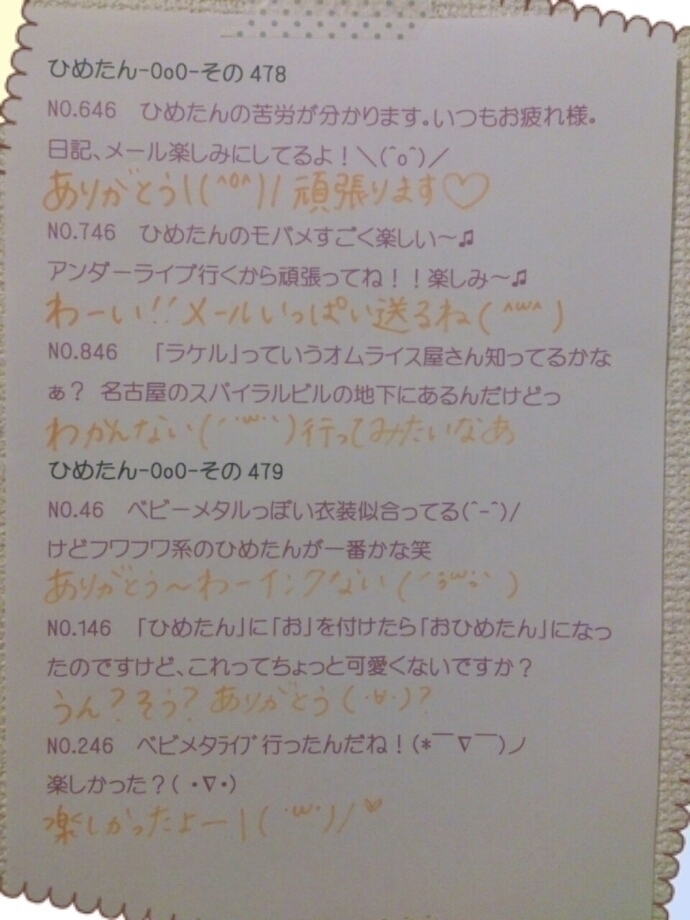 ひめたん-OoO-その478
NO.646 ひめたんの苦労が分かります。いつもお疲れ様。
日記、メール楽しみにしてるよ！＼(^o^)／
ありがとう\(^o^)/頑張ります♡
NO.746 ひめたんのモバメすごく楽しい〜♫
アンダーライブ行くから頑張ってね！！楽しみ〜♫
わーい!!メールいっぱい送るね(^ω^)
NO.846 「ラケル」っていうオムライス屋さん知ってるかな
ぁ？ 名古屋のスパイラルビルの地下にあるんだけどっ
わかんない(´･ω･`)行ってみたいなあ
ひめたん-OoO-その479
NO.46 ベビーメタルっぽい衣装似合ってる(^-^)/
けどフワフワ系のひめたんが一番かな笑
ありがとう〜わーインクない(´;ω;`)
NO.146 「ひめたん」に「お」を付けたら「おひめたん」になっ
たのですけど、これってちょっと可愛くないですか？
うん?そう?ありがとう(･∀･)?
NO.246 ベビメタﾗｲﾌﾞ行ったんだね！(*￣∇￣)ノ
楽しかった？( ・∇・)
楽しかったよー\(･ω･)/♡